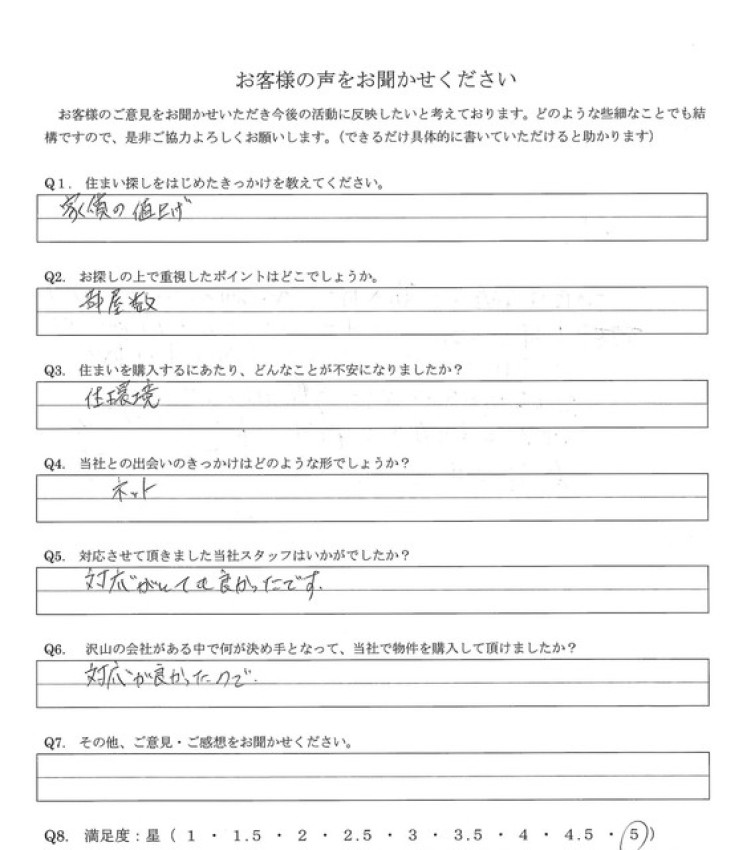 お客様の声をお聞かせください
お客様のご意見をお聞かせいただき今後の活動に反映したいと考えております。どのような些細なことでも結
構ですので、是非ご協力よろしくお願いします。（できるだけ具体的に書いていただけると助かります）
Q1. 住まい探しをはじめたきっかけを教えてください。
家賃の値上げ
Q2. お探しの上で重視したポイントはどこでしょうか。
部屋数
Q3. 住まいを購入するにあたり、どんなことが不安になりましたか？
住環境
Q4. 当社との出会いのきっかけはどのような形でしょうか？
ネット
Q5. 対応させて頂きました当社スタッフはいかがでしたか？
対応がとても良かったです。
Q6. 沢山の会社がある中で何が決め手となって、当社で物件を購入して頂けましたか？
対応が良かったので。
Q7. その他、ご意見・ご感想をお聞かせください。
Q8. 満足度：星（ 1 ・ 1.5 ・ 2 ・ 2.5 ・ 3 ・ 3.5 ・ 4 ・ 4.5 ・ 5 ）